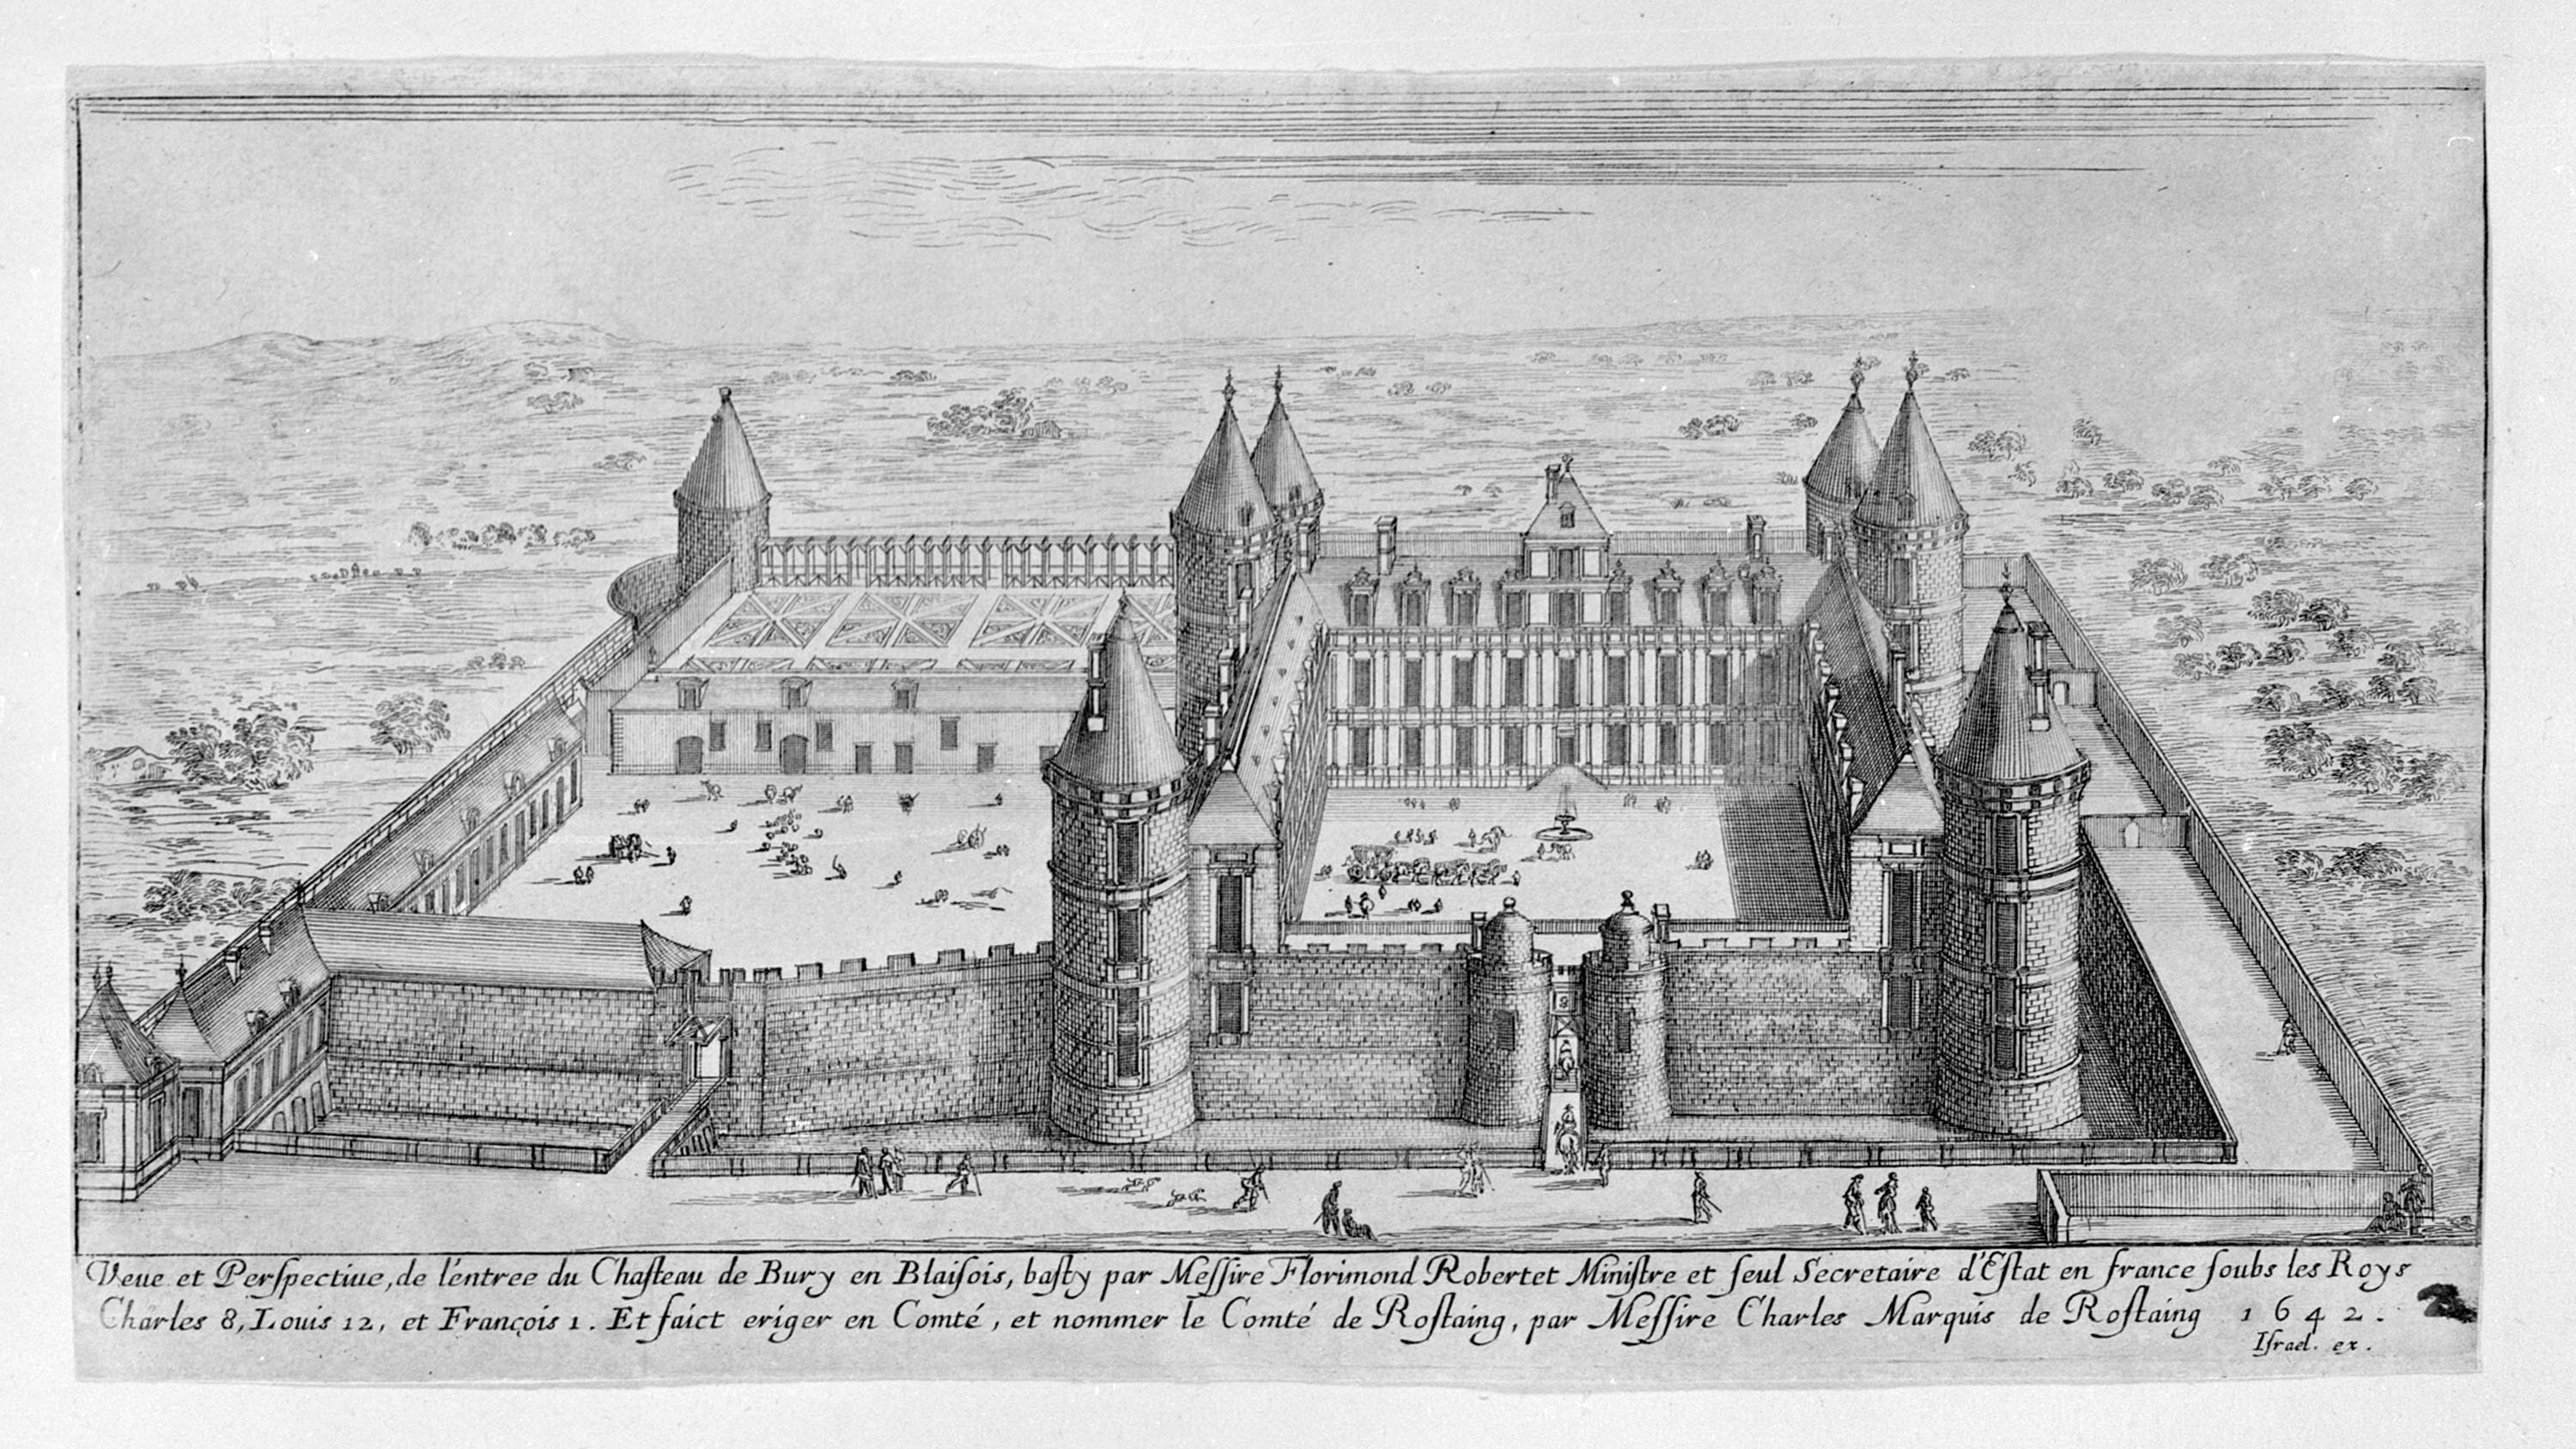 Veue et Perſpectiue, de l'entree du Chaſteau de Bury en Blaiſois, baſty par Meſſire Florimond Robertet Miniſtre et ſeul Secretaire d'Eſtat en france ſoubs les Roys
Charles 8, Louis 12, et François 1. Et faict eriger en Comté, et nommer le Comté de Roſtaing, par Meſſire Charles Marquis de Roſtaing 1642.
Iſrael. ex.